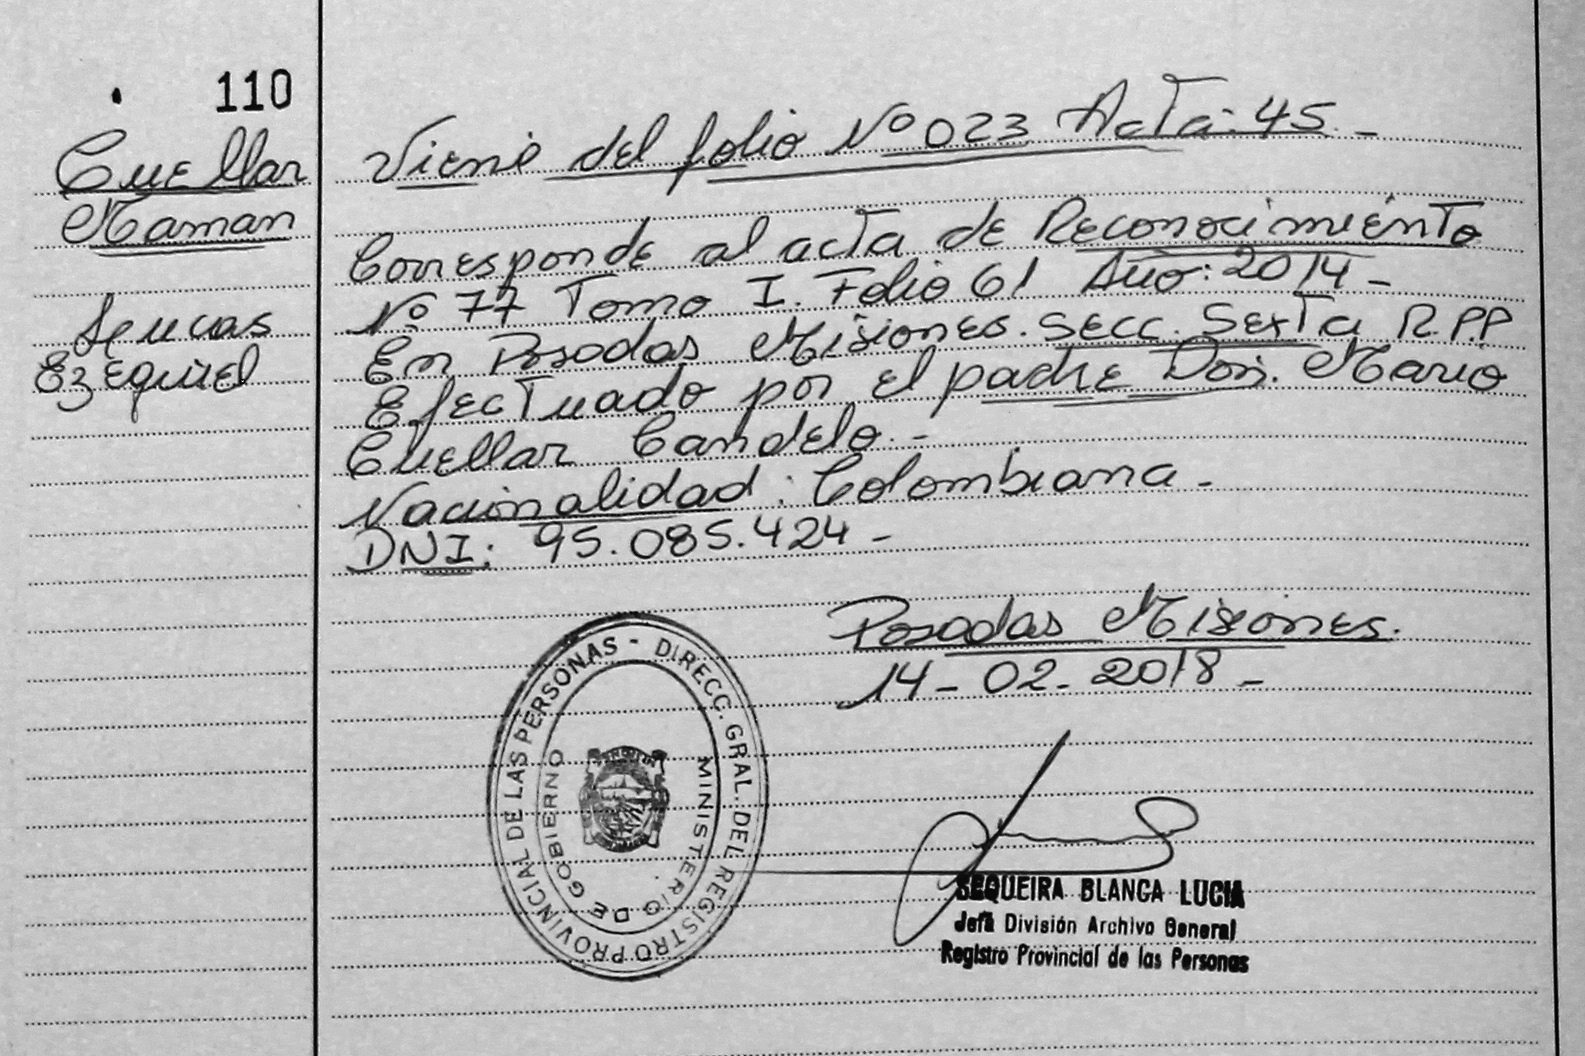 110
Cuellar
Maman
Lucas
Ezequiel
Viene del folio Nº 023 Acta: 45.-
Corresponde al acta de Reconocimiento
Nº 77 Tomo I. Folio 61 Año: 2014-
En Posadas Misiones. Secc. Sexta R.P.P
Efectuado por el padre Don. Mario
Cuellar Candelo.-
Nacionalidad: Colombiana.-
DNI: 95.085.424-
Posadas Misiones.
14-02-2018-
DIRECC. GRAL. DEL REGISTRO PROVINCIAL DE LAS PERSONAS -
MINISTERIO DE GOBIERNO
SEQUEIRA BLANCA LUCIA
Jefa División Archivo General
Registro Provincial de las Personas